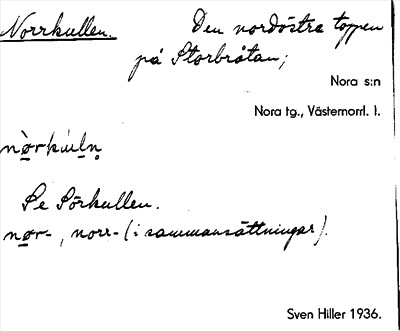 Norrkullen. Den nordöstra toppen
på Storbråtan;
Nora s:n
Nora tg., Västernorrl. l.
nò̲rkúl̲n̥
Se Sörkullen.
nø̲r-, norr- (i sammansättningar).
Sven Hiller 1936.